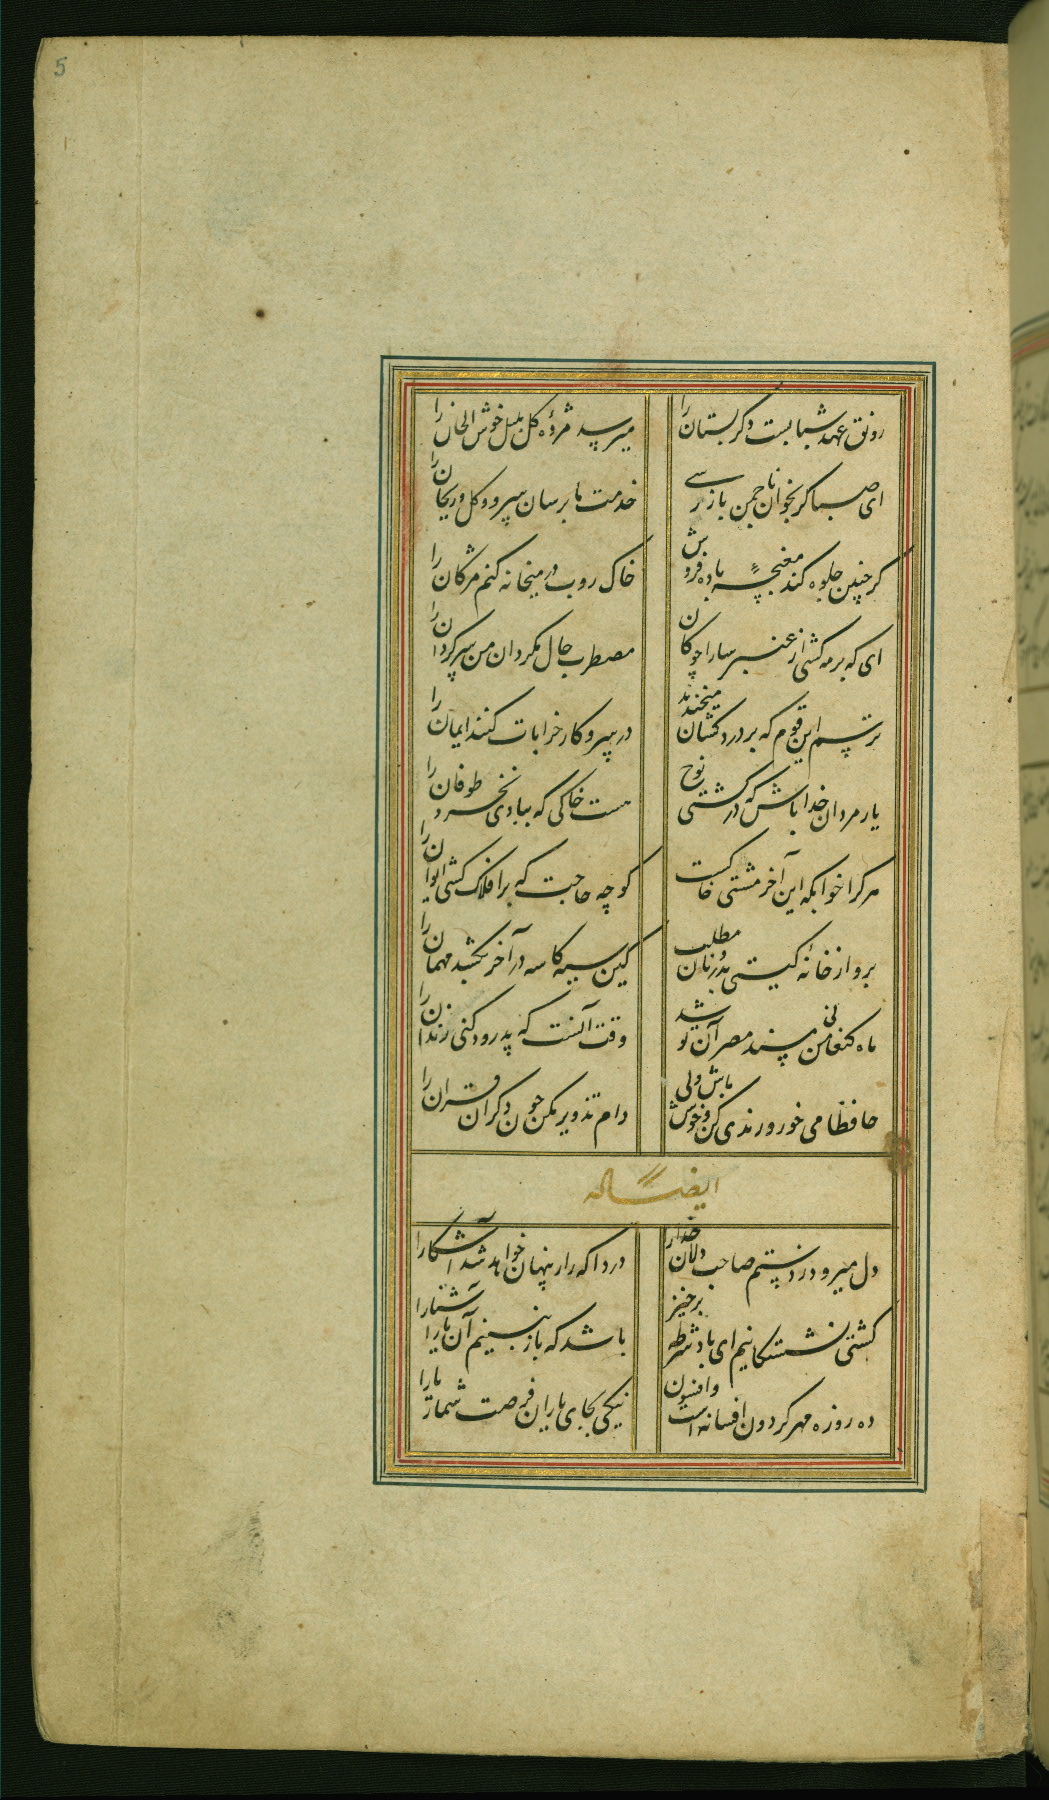 5
رونق عهد شبابست دگر بستان را
میرسد مژدهٔ گل بلبل خوش الحان را
ای صبا گر بجوانان چمن باز رسی
خدمت ما برسان سرو و گل و ریحان را
گر چنین جلوه کند مغبچهٔ باده فروش
خاک روب در میخانه کنم مژگان را
ای که بر مه کشی از عنبر سارا چوگان
مضطرب حال مگردان من سرگردان را
ترسم این قوم که بر دردکشان میخندند
در سر و کار خرابات کنند ایمان را
یار مردان خدا باش که در کشتی نوح
هست خاکی که بآبی نخرد طوفان را
هر کرا خوابگه این آخر مشتی خاکست
گو چه حاجت که بر افلاک کشی ایوان را
برو از خانهٔ گیتی بدر و نان مطلب
کین سیه کاسه در آخر بکشد مهمان را
ماه کنعانی من مسند مصر آن تو شد
وقت آنست که پدرود کنی زندان را
حافظا می خور و رندی کن و خوش باش ولی
دام تذویر مکن چون دگران قران را
ایضاً له
دل میرود ز دستم صاحب دلان خدا را
دردا که راز پنهان خواهد شد آشکارا
کشتی نشستگانیم ای باد شرطه برخیز
باشد که باز بینیم آن یار آشنا را
ده روزه مهر گردون افسانه است و افسون
نیکی بجای یاران فرصت شمار یارا